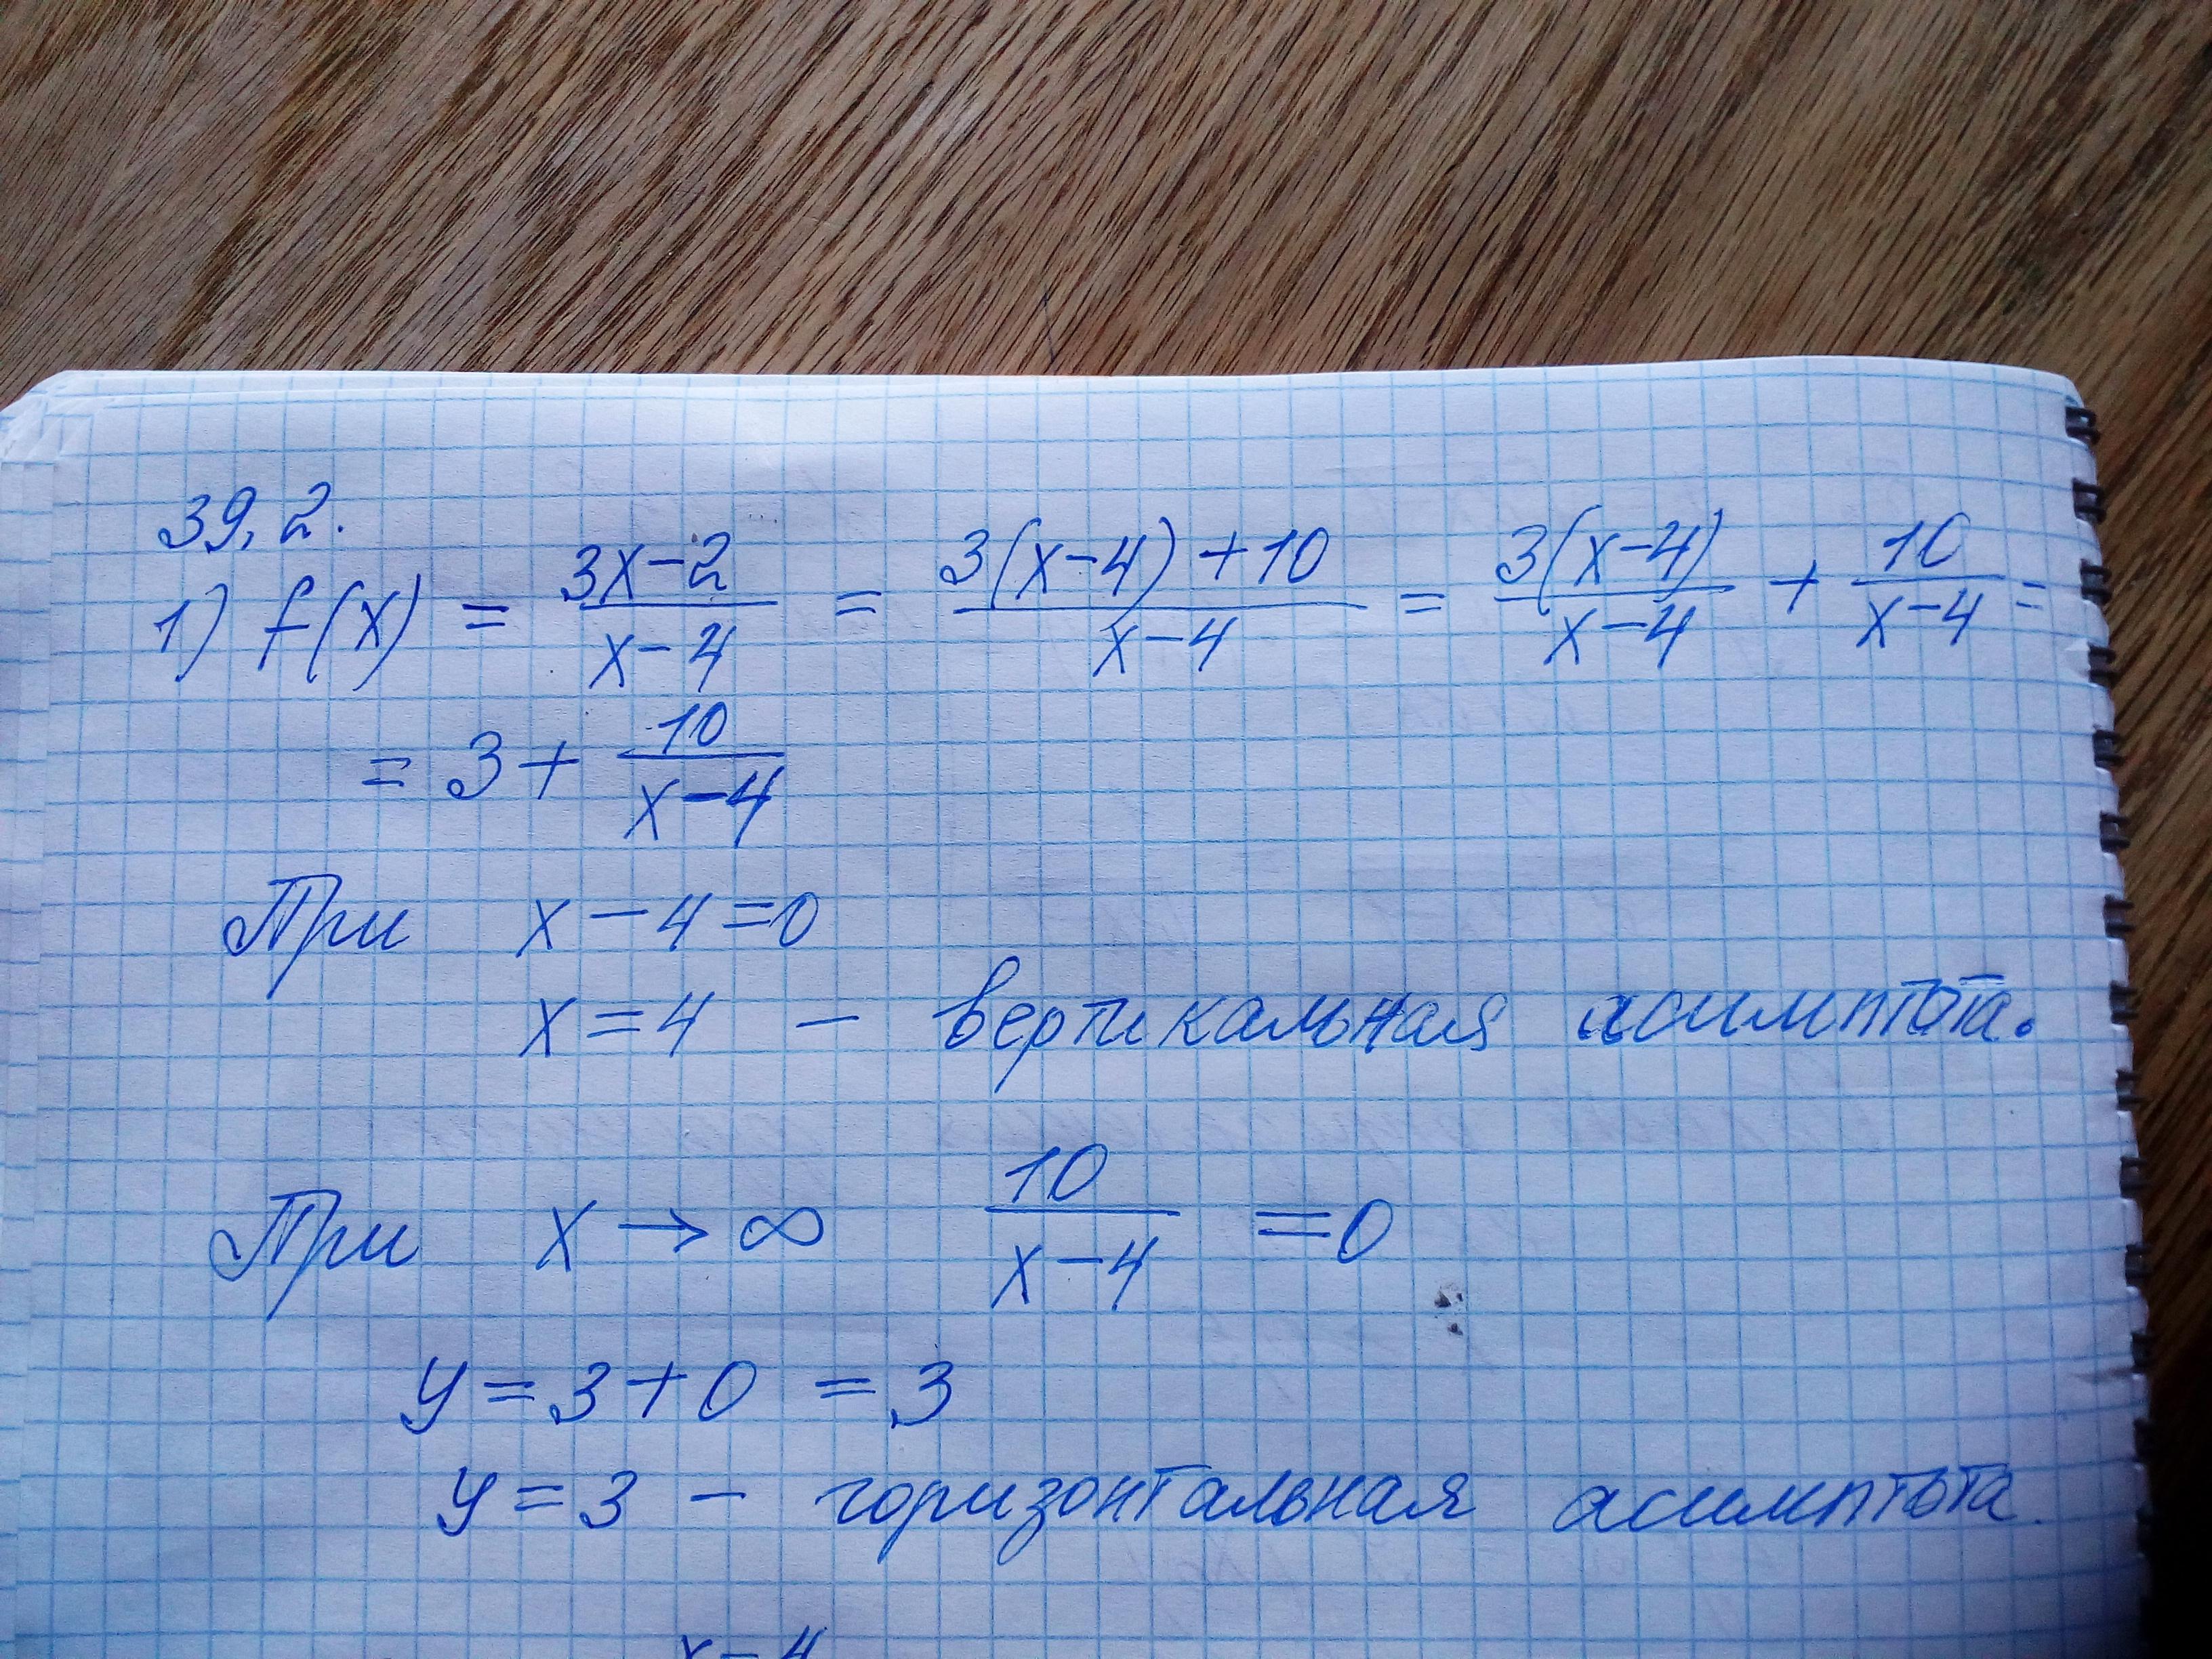 39,2.
1) f(x) = (3x-2)/(x-4) = (3(x-4)+10)/(x-4) = (3(x-4))/(x-4) + 10/(x-4) =
= 3 + 10/(x-4)
При x-4=0
x=4 - вертикальная асимптота.
При x → ∞ 10/(x-4) =0
y=3+0 =3
y=3 - горизонтальная асимптота.
x-4